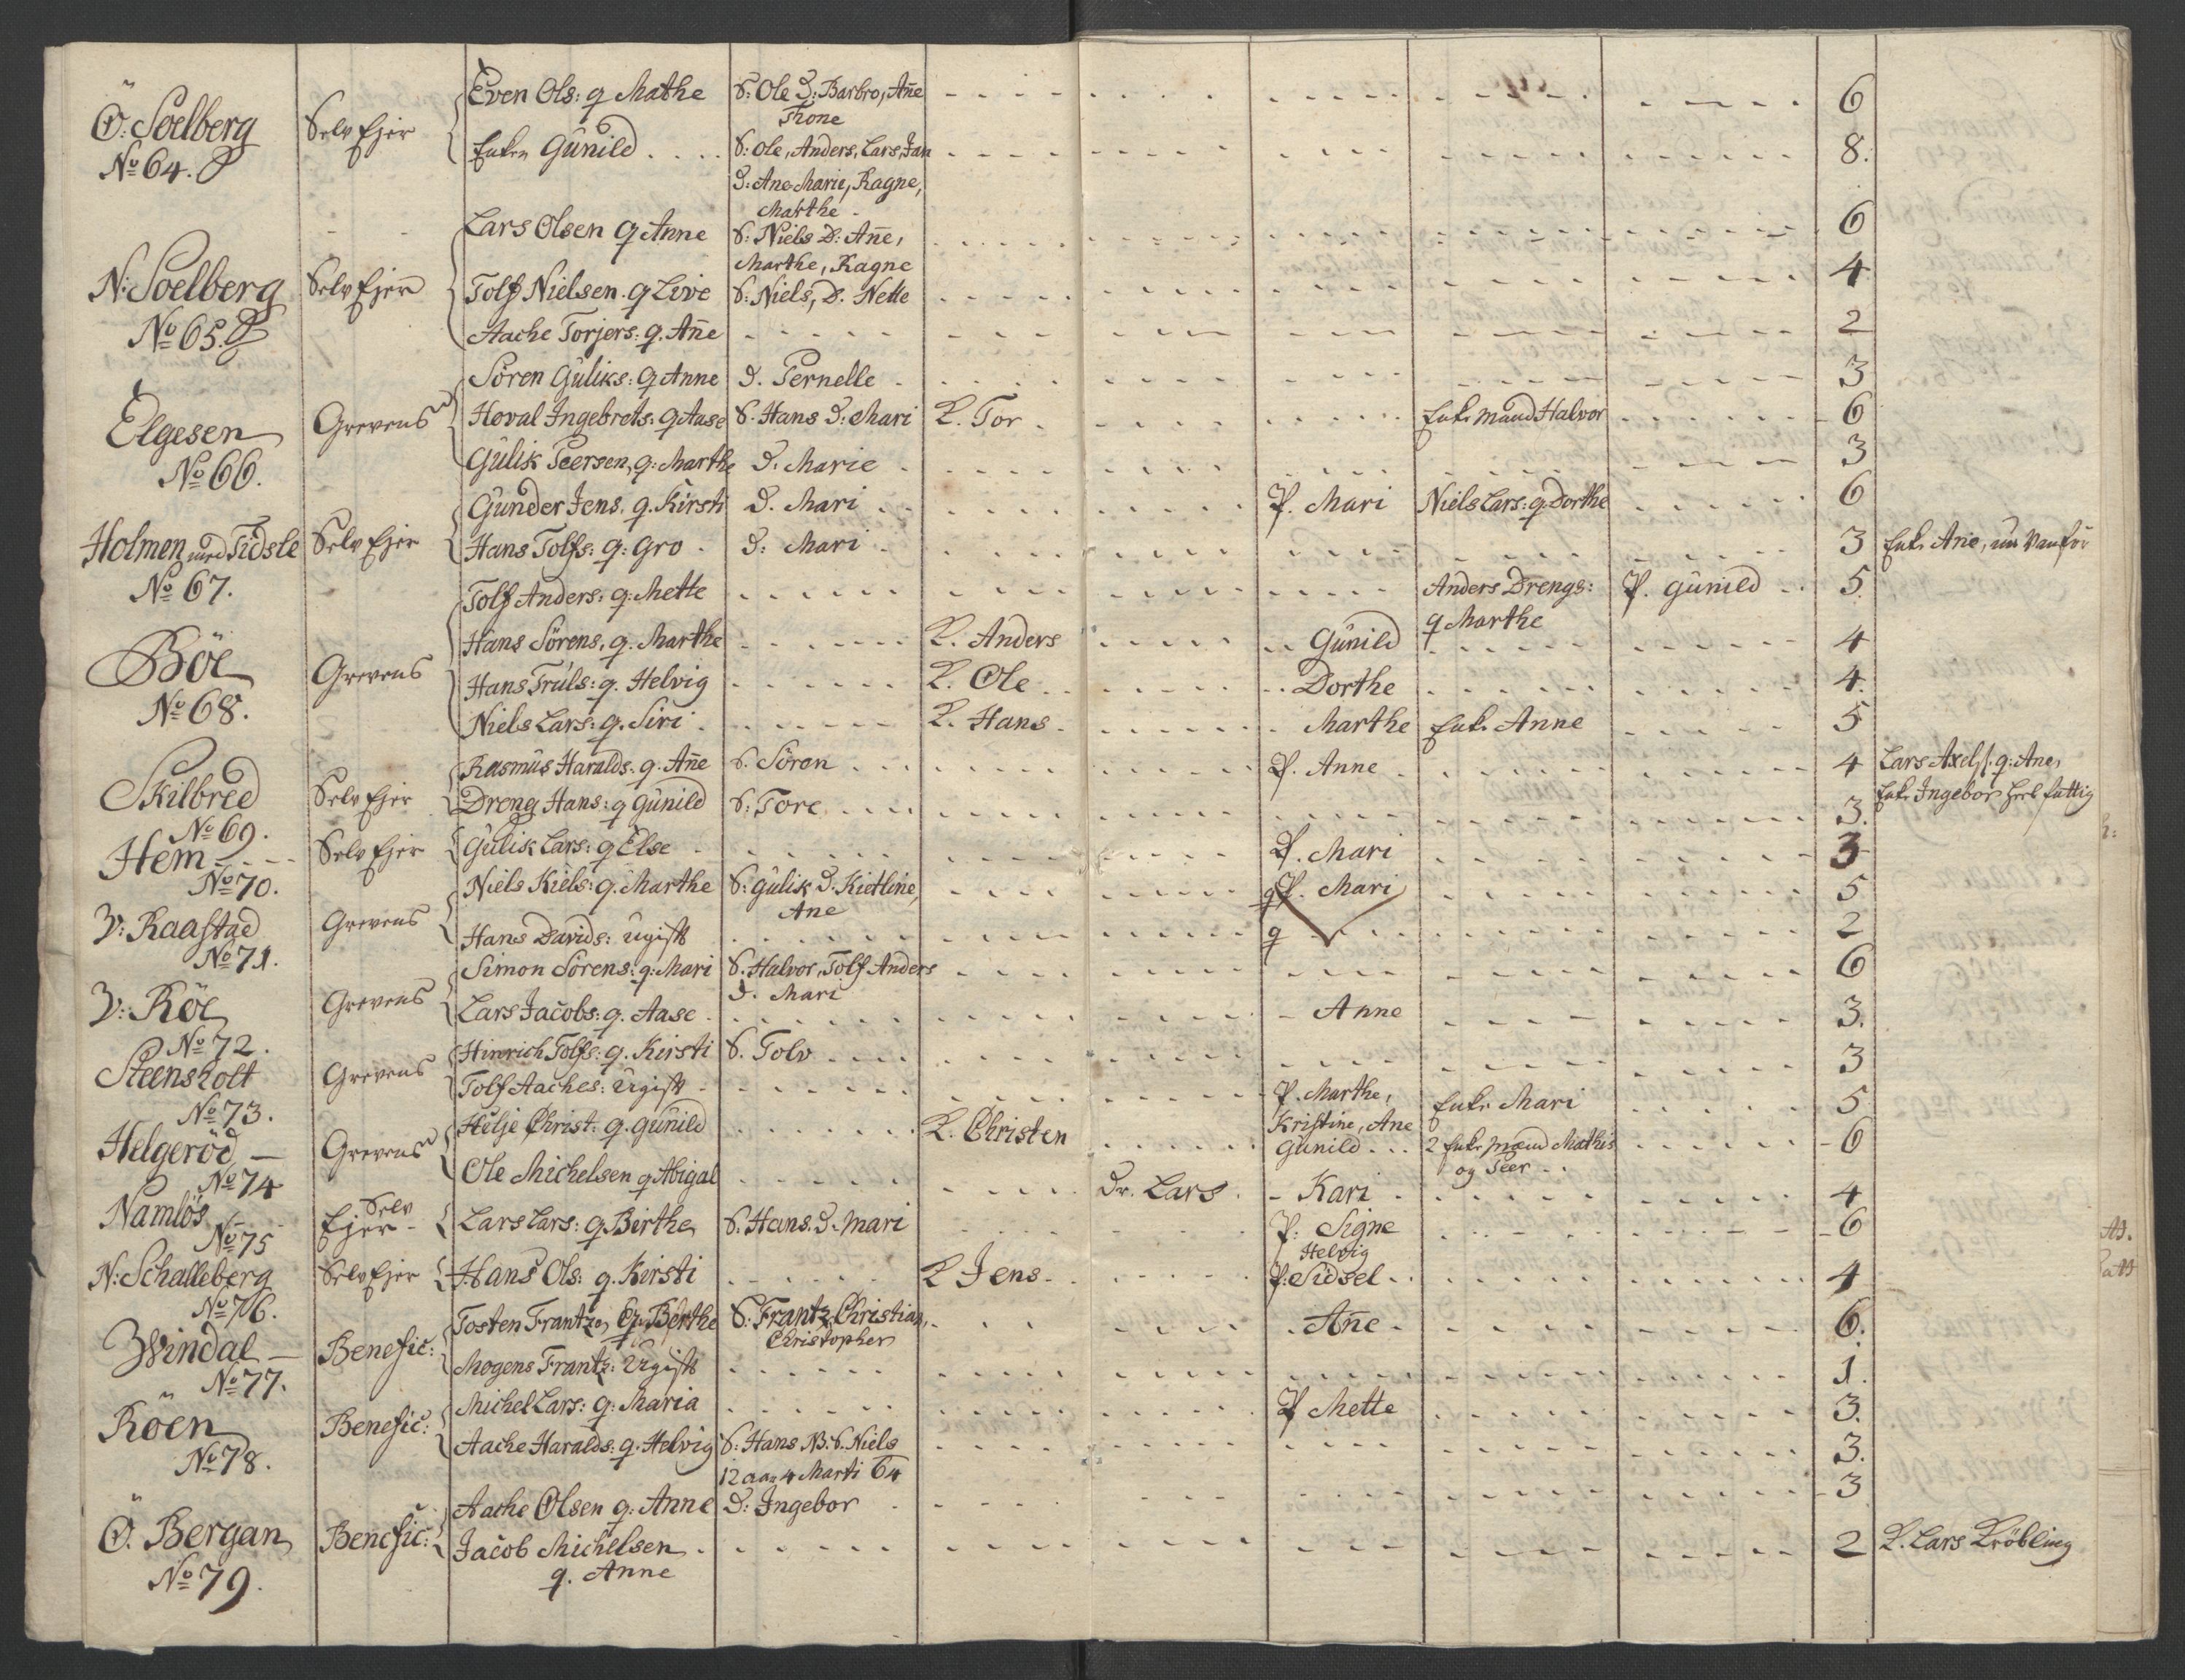 Ö: Soelberg Selv Ejer Even Ols: q Mathe S: Ole D: Barbro, Añe 6
Thone
No 64. Enken Gunild S: Ole, Anders, Lars, Jan 8.
D: Ane Marie, Ragne,
Marthe
Lars Olsen q Anne S: Niels D: Añe, 6
Marthe, Ragne
N: Soelberg Selv Ejer Tolf Nielsen q Live S: Niels, D. Nette 4
No 65. Aache Torjers: q. Añe 2
Sören Guliks: q Anne D. Pernelle 3
Elgesen Grevens Hoval Ingebrets: q Aase S. Hans D: Mari K. Tor Enke Mand Halvor 6
No 66. Gulik Peersen, q: Marthe D. Marie 3
Gunder Jens. q. Kirsti D. Mari P. Mari Niels Lars: q. Dorthe 6
Holmen med Tidsle Selv Ejer Hans Tolfs: q: Gro D: Mari 3 Enke Ane, Vanför
No 67.
Tolf Anders: q: Mette Anders Drengs: P. Gunild 5
q Marthe
Hans Sörens. q. Marthe K. Anders Gunild 4
Böe Grevens Hans Truls: q. Helvig K. Ole Dorthe 4.
No 68. Niels Lars: q. Siri K. Hans Marthe Enke Anne 5
Rasmus Haralds: q. Añe S. Sören P. Anne 4 Lars Axels: q: Ane,
Skilbred Selv Ejer Dreng Hans: q Gunild S: Tore 3. Enke Ingebor fattig
No 69.
Hem Selv Ejer Gulik Lars: q Else P. Mari 3
No 70.
Niels Kiels: q. Marthe S: Gulik D. Kietline, P. Mari 5
Ane
V: Raastad Grevens Hans Davids: Ugift 2
No 71.
Simon Sörens: q: Mari S. Halvor, Tolf Anders 6
D. Mari
V: Röe Grevens Lars Jacobs: q. Aase Anne 3.
No 72.
Hinrich Tolfs: q. Kirsti S. Tolv 3
Steensholt Grevens Tolf Aaches: Ugift P. Marthe, Enke Mari 5
No 73. Kristine, Ane
Helje Christ: q. Gunild K. Christen Gunild 2 Enke Mænd Mathis 6
og Peer
Helgeröd Grevens Ole Michelsen q Abigal Dr. Lars Kari 4
No 74
Namlös Selv Ejer Lars Lars: q. Birthe S: Hans. D. Mari P: Signe 6
No 75 Helvig
N: Schalleberg Selv Ejer Hans Ols: q. Kirsti K Jens P: Sidsel 4
No 76.
Tosten Frantzen q. Berthe S: Frantz, Christian, Añe 6.
Christopher
Windal Benefic: Mogens Frantz: Ugift 1.
No 77.
Michel Lars: q: Maria P Mette 3.
Röen Benefic: Aache Haralds: q. Helvig S: Hans N.B. S. Niels 3.
No 78. 12 4 Marti 64
Aache Olsen q: Anne D: Ingebor 3
Ö. Bergan Benefic: Jacob Michelsen 2 K. Lars Kröbling
q. Anne
No 79.